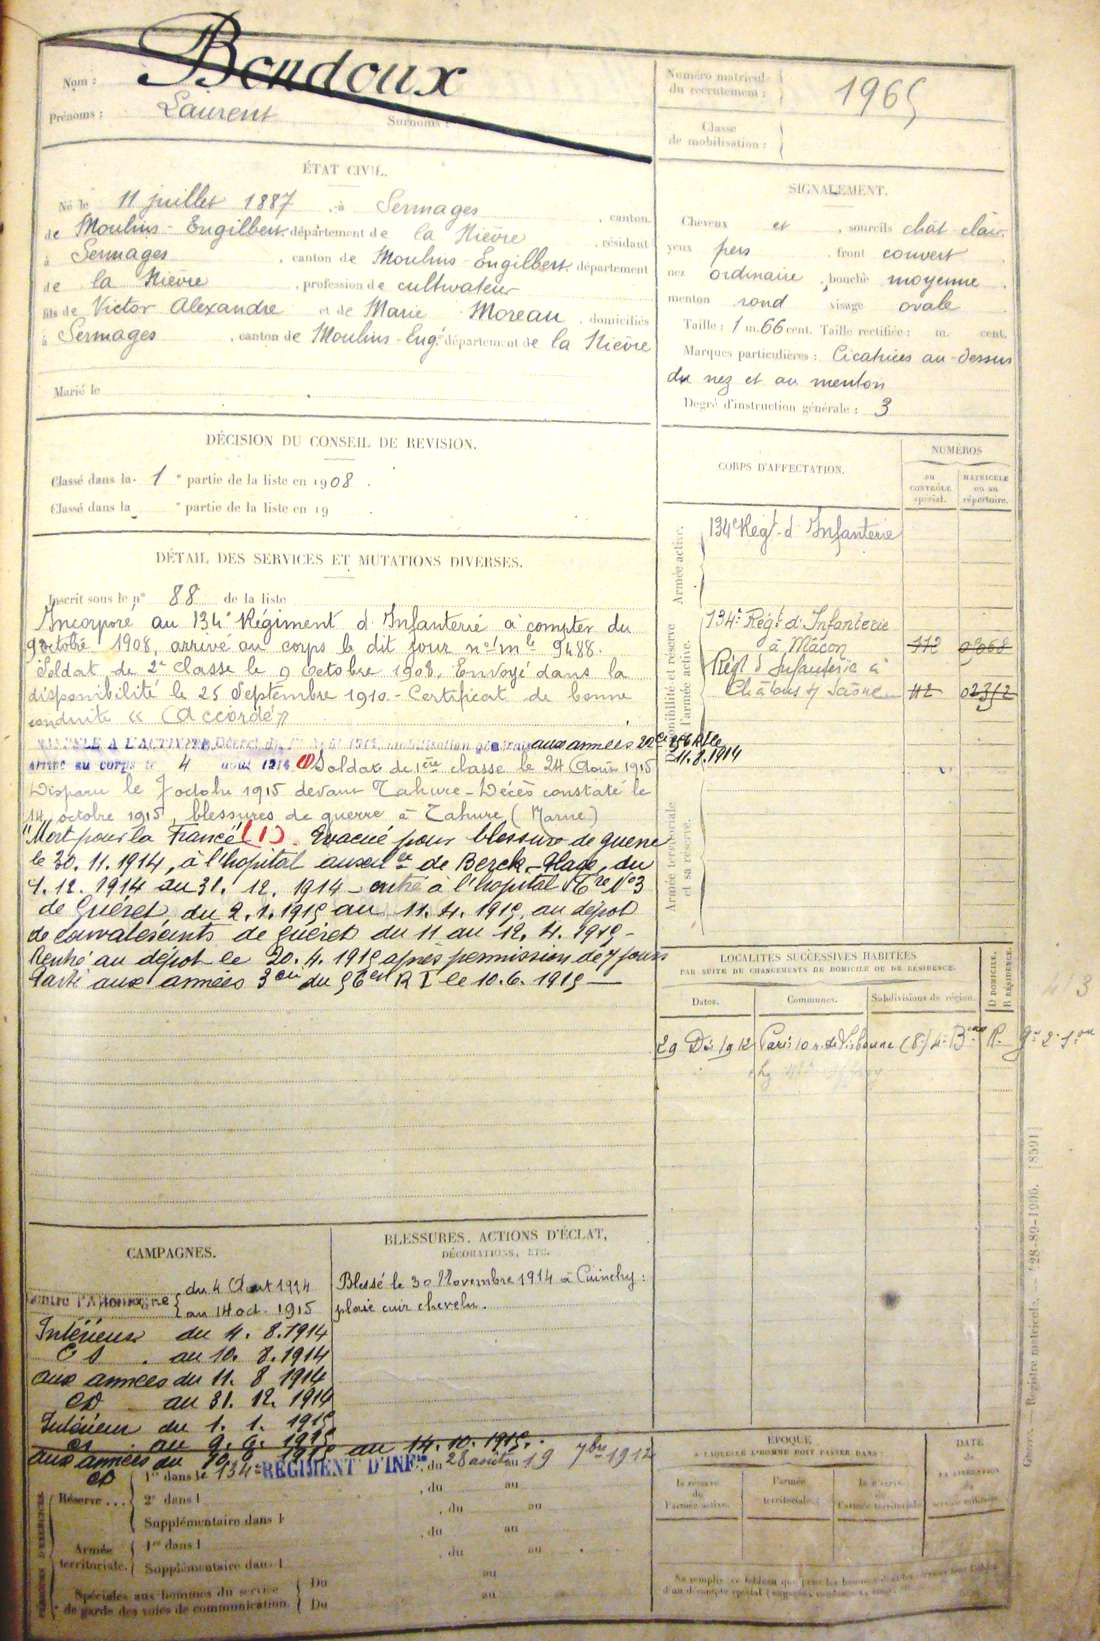 Nom : Bondoux
Prénoms : Laurent Surnoms :
Numéro matricule du recrutement : 1965
Classe de mobilisation :
ÉTAT CIVIL.
Né le 11 juillet 1887, à Sermages, canton
de Moulins-Engilbert département de la Nièvre, résidant
à Sermages, canton de Moulins-Engilbert département
de la Nièvre, profession de cultivateur
fils de Victor Alexandre et de Marie Moreau, domiciliés
à Sermages, canton de Moulins-Eng. département de la Nièvre
Marié le
SIGNALEMENT.
Cheveux et, sourcils chât clair.
yeux pers, front couvert
nez ordinaire, bouche moyenne
menton rond visage ovale
Taille : 1 m. 66 cent. Taille rectifiée : m. cent.
Marques particulières : Cicatrices au-dessus
du nez et au menton
Degré d'instruction générale : 3
DÉCISION DU CONSEIL DE REVISION.
Classé dans la 1e partie de la liste en 1908.
Classé dans la e partie de la liste en 19
DÉTAIL DES SERVICES ET MUTATIONS DIVERSES.
Inscrit sous le n° 88 de la liste
Incorporé au 134e Régiment d'Infanterie à compter du
9 octobre 1908, arrivé au corps le dit jour no mle 9488.
Soldat de 2e classe le 9 octobre 1908. Envoyé dans la
disponibilité le 25 Septembre 1910.- Certificat de bonne
conduite « Accordé »
RAPPELÉ A L'ACTIVITÉ, Décret du 1914, mobilisation générale aux armées 256 RI le
arrivé au corps le 4 août 1914 (1) Soldat de 1ère classe le 24 Août 1915 11.8.1914
Disparu le 7 octobre 1915 devant Tahure - Décès constaté le
14 octobre 1915, blessures de guerre à Tahure (Marne)
"Mort pour la France" (1). Evacué pour blessure de guerre
le 30.11.1914, à l'hopital auxil re de Berck-Plage, du
1.12.1914 au 31.12.1914 - entré à l'hopital No 3
de Guéret, du 2.1.1915 au 11.4.1915, au dépot
de convalescents de Guéret du 11 au 12.4.1915 -
Rentré au dépot le 20.4.1915 après permission de 7 jours
Parti aux armées 3e Cie du 56e R I le 10.6.1915 -
CORPS D'AFFECTATION.
NUMÉROS
au CONTRÔLE spécial.
MATRICULE ou au répertoire.
Armée active.
134e Régt. d'Infanterie
Disponibilité et réserve de l'armée active.
134e Régt. d'Infanterie
à Mâcon 112 0368
Régt d'Infanterie à
Châlons s/ Saône 112 02352
Armée territoriale et sa réserve.
LOCALITÉS SUCCESSIVES HABITÉES
PAR SUITE DE CHANGEMENTS DE DOMICILE OU DE RÉSIDENCE.
Dates. Communes. Subdivisions de région. D DOMICILE. R RÉSIDENCE.
29 Dé. 1912 Paris 10 r. de Lisbonne (8e) 4e Bau R.
CAMPAGNES.
Contre l'Allemagne du 4 Aout 1914
au 14 oct. 1915
Intérieur du 4.8.1914
au 10.8.1914
aux armées du 11.8.1914
au 31.12.1914
Intérieur du 1.1.1915
au 9.6.1915
aux armées du 10.6.1915 au 14.10.1915.
BLESSURES, ACTIONS D'ÉCLAT,
DÉCORATIONS, ETC.
Blessé le 30 Novembre 1914 à Cuinchy :
plaie cuir chevelu.
PÉRIODES D'EXERCICES
Réserve ... 1er dans le 134e RÉGIMENT D'INFie, du 28 août au 19 7bre 1912
2e dans l, du au
Supplémentaire dans l, du au
Armée territoriale. 1re dans l, du au
Supplémentaire dans l, du au
Spéciales aux hommes du service de garde des voies de communication. Du au
Du au
ÉPOQUE
À LAQUELLE L'HOMME DOIT PASSER DANS :
la réserve de l'armée active.
l'armée territoriale.
la réserve de l'armée territoriale.
DATE de LA LIBÉRATION du service militaire.
Registre matricule. - 28-89-1906. [8591]